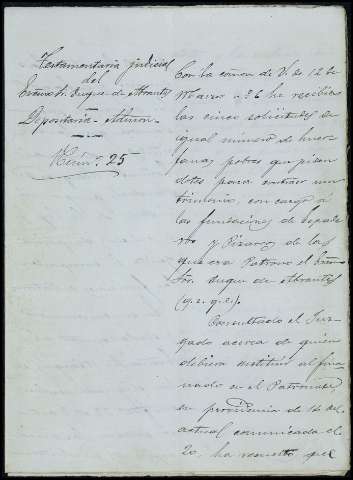 Testamentaria judicial
del
Excmo. Sr. Duque de Abrantes
Depositaria - Admon.
Núm. 25
Con la comun. de V. de 12 de
Marzo he recibido
las cinco solicitudes de
igual número de huer
fanas pobres que piden
dotes para contraer ma
trimonio, con cargo a
las fundaciones de
y Pizarro de las
que era Patrono el Excmo.
Sor. Duque de Abrantes
(q. e. p. d.).
Consultado el Juz
gado acerca de quien
debiera sustituir al fi
nado en el Patronato,
en providencia de 14 del
actual comunicada el
20, ha resuelto que